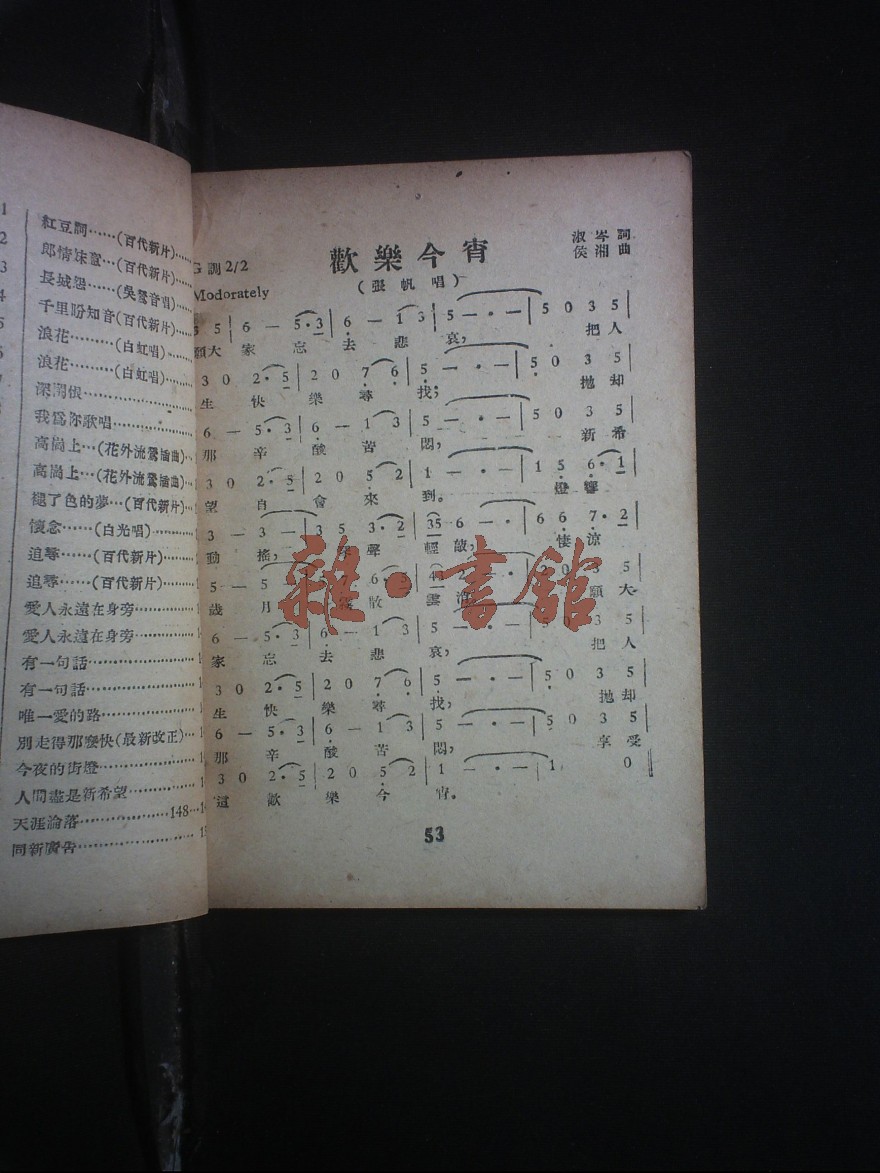 紅豆詞……(百代新片)
郎情妹意…(百代新片)
長城怨……(吳鶯音唱)
千里盼知音(百代新片)
浪花………(白虹唱)
浪花………(白虹唱)
深閨恨
我爲你歌唱
高崗上…(花外流鶯插曲)
高崗上…(花外流鶯插曲)
褪了色的夢…(百代新片)
懷念……(白光唱)
追尋……(百代新片)
追尋……(百代新片)
愛人永遠在身旁
愛人永遠在身旁
有一句話
有一句話
唯一愛的路
別走得那麼快(最新改正)
今夜的街燈
人間盡是新希望
天涯淪落 148
同新廣告
G調2/2
Modorately
歡樂今宵
(張帆唱)
淑岑詞
侯湘曲
5 5 | 6 — 5·3 | 6 — 1 3 | 5 — · — | — · — | 5 0 3 5 |
願大家忘去悲哀, 把人
3 0 2·5 | 2 0 7 6 | 5 · — | — · — | 5 0 3 5 |
生快樂尋找, 拋却
6 — 5·3 | 6 — 1 3 | 5 — · — | — · — | 5 0 3 5 |
那辛酸苦悶, 新希
3 0 2·5 | 2 0 5 2 | 1 — · — | — · — | 1 5 6·1 |
望自會來到。 燈響
3 — 3 — | 3 5 3·2 | 35 6 — | — · — | 6 6 7·2 |
動搖, 聲輕敲, 悽涼
5 — 5
歲月 散雲 願大
6 — 5·3 | 6 — 1 3 | 5 — · —
家忘去悲哀, 把人
3 0 2·5 | 2 0 7 6 | 5 — · — | — · — | 5 0 3 5 |
生快樂尋找, 拋却
6 — 5·3 | 6 — 1 3 | 5 — · — | — · — | 5 0 3 5 |
那辛酸苦悶, 享受
3 0 2·5 | 2 0 5 2 | 1 — · — | — · — | 1 0 ‖
這歡樂今宵。
53
雜·書館